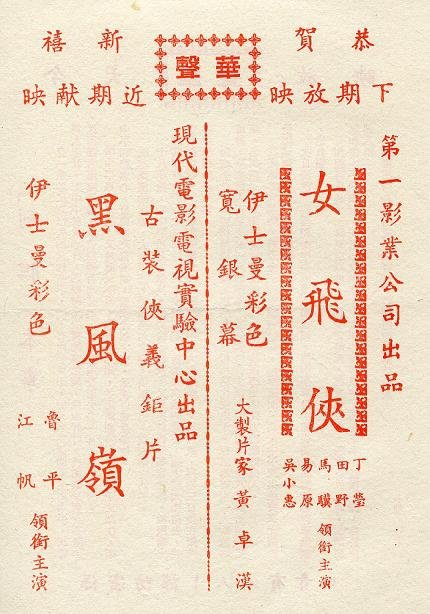 恭賀新禧
華聲
下期放映
近期獻映
第一影業公司出品
女飛俠
丁瑩
田野
馬驥
易原
吳小惠
領銜主演
伊士曼彩色
寬銀幕
大製片家黃卓漢
現代電影電視實驗中心出品
古裝俠義鉅片
黑風嶺
伊士曼彩色
魯平
江帆
領銜主演